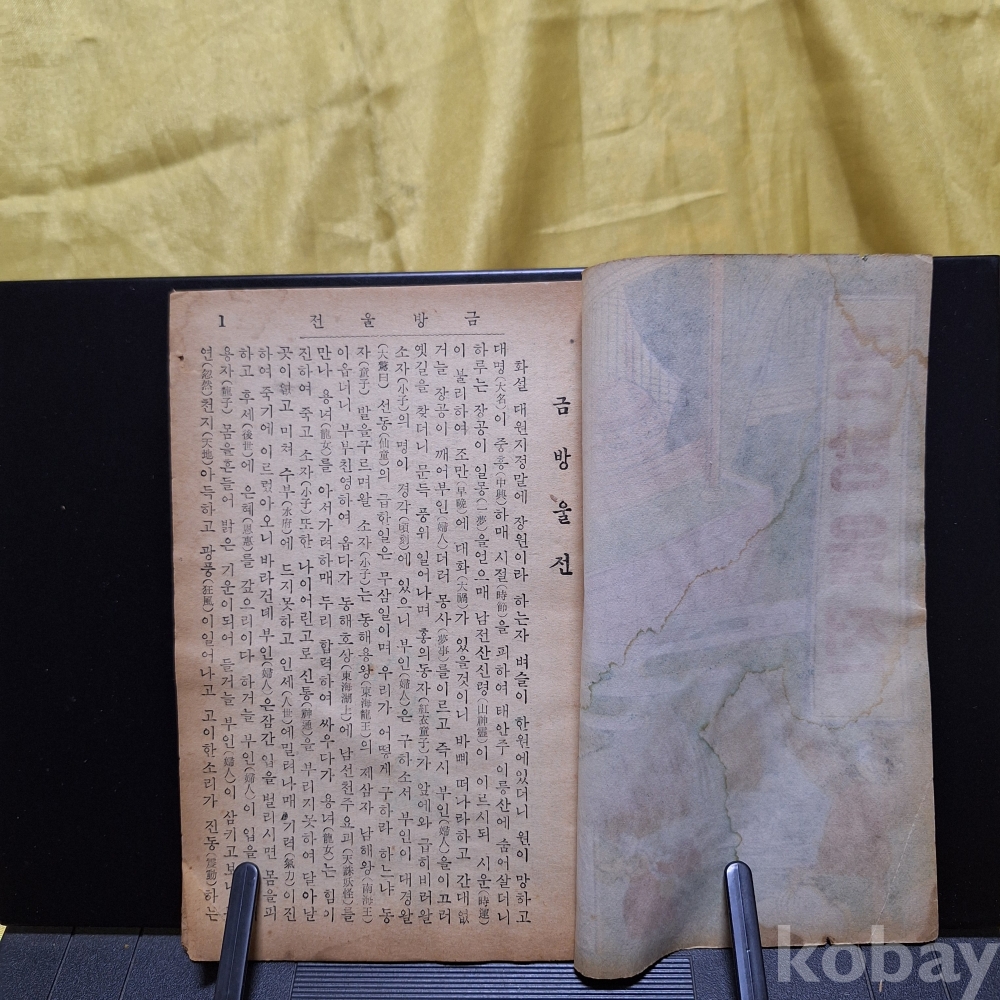 금방울전
금 방 울 전 1
화설 대원지정말에 장원이라 하는자 벼슬이 한원에있더니 원이 망하고
대명(大名)이 중흥(中興)하매 시절(時節)을 피하여 태안주 이릉산에 숨어살더니
하루는 장공이 일몽(一夢)을얻으매 남전산신령(山神靈)이 이르시되 시운(時運)
이 불리하여 조만(早晩)에 대화(大禍)가 있을것이니 바삐 떠나라하고 간대 없
거늘 장공이 깨어부인(婦人)더러 몽사(夢事)를이르고 즉시 부인(婦人)을이끄러
옛길을 찾더니 문득 풍위 일어나며 홍의동자(紅衣童子)가 앞에와 급히비러완
소자(小子)의 명이 경각(頃刻)에 있으니 부인(婦人)은 구하소서 부인이 대경왈
(大驚曰) 선동(仙童)의 급한일은 무삼일이며 우리가 어떻게 구하라 하느냐 동
자(童子) 발을구르며왈 소자(小子)는 동해용왕(東海龍王)의 제삼자 남해왕(南海王)
이옵너니 부부친영하여 옵다가 동해호상(東海湖上)에 남선천주요괴(天誅妖怪)를
만나 용녀(龍女)를 아서가려하매 두리 합력하여 싸우다가 용녀(龍女)는 힘이
진하여 죽고 소자(小子)또한 나이어린고로 신통(神通)을 부리지못하여 닫아날
곳이 없고 미쳐 수부(水府)에 드지못하고 인세(人世)에밀려나매 기력(氣力)이진
하여 죽기에 이르렀아오니 바라건데 부인(婦人)은잠간 입을 벌리시면 몸을피
하고 후세(後世)에 은혜(恩惠)를 갚으리이다 하거늘 부인(婦人)이 입을
용자(龍子) 몸을흔들어 밝은 기운이되어 들거늘 부인(婦人)이 삼키고보니
연(忽然)천지(天地)아득하고 광풍(狂風)이일어나고 고이한소리가 진동(震動)하는
kobay